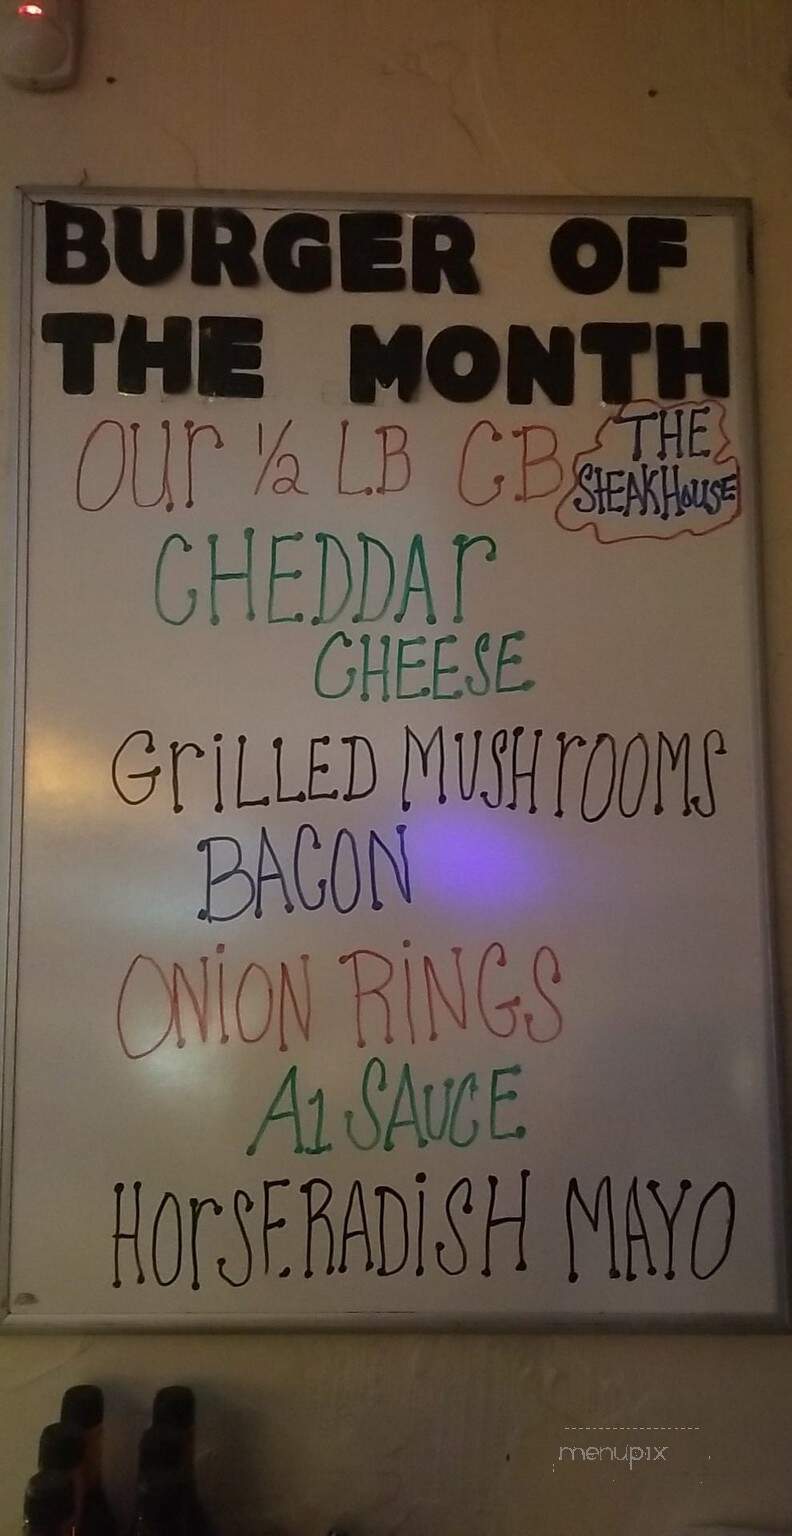 BURGER OF
THE MONTH
Our ½ LB CB
THE
STEAKHOUSE
CHEDDAr
CHEESE
GrILLED MUSHrOOMS
BACON
ONiON RiNGS
A1 SAUCE
HOrSERADiSH MAYO
menupix